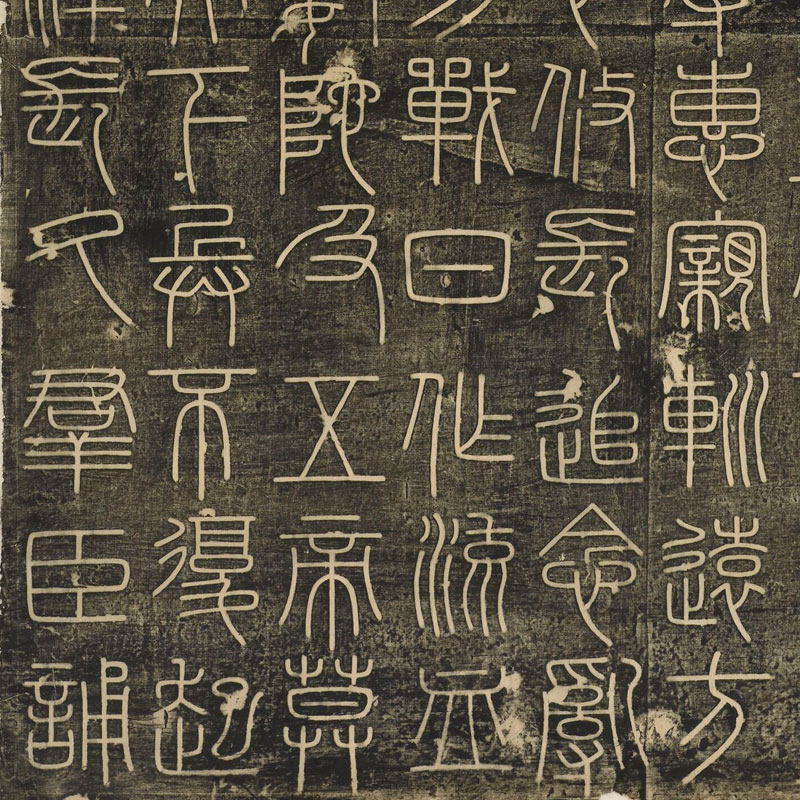 惠親䡅遠方
攸長追念亂
戰日作流血
陀及五帝莫
下兵不復起
長久羣臣誦